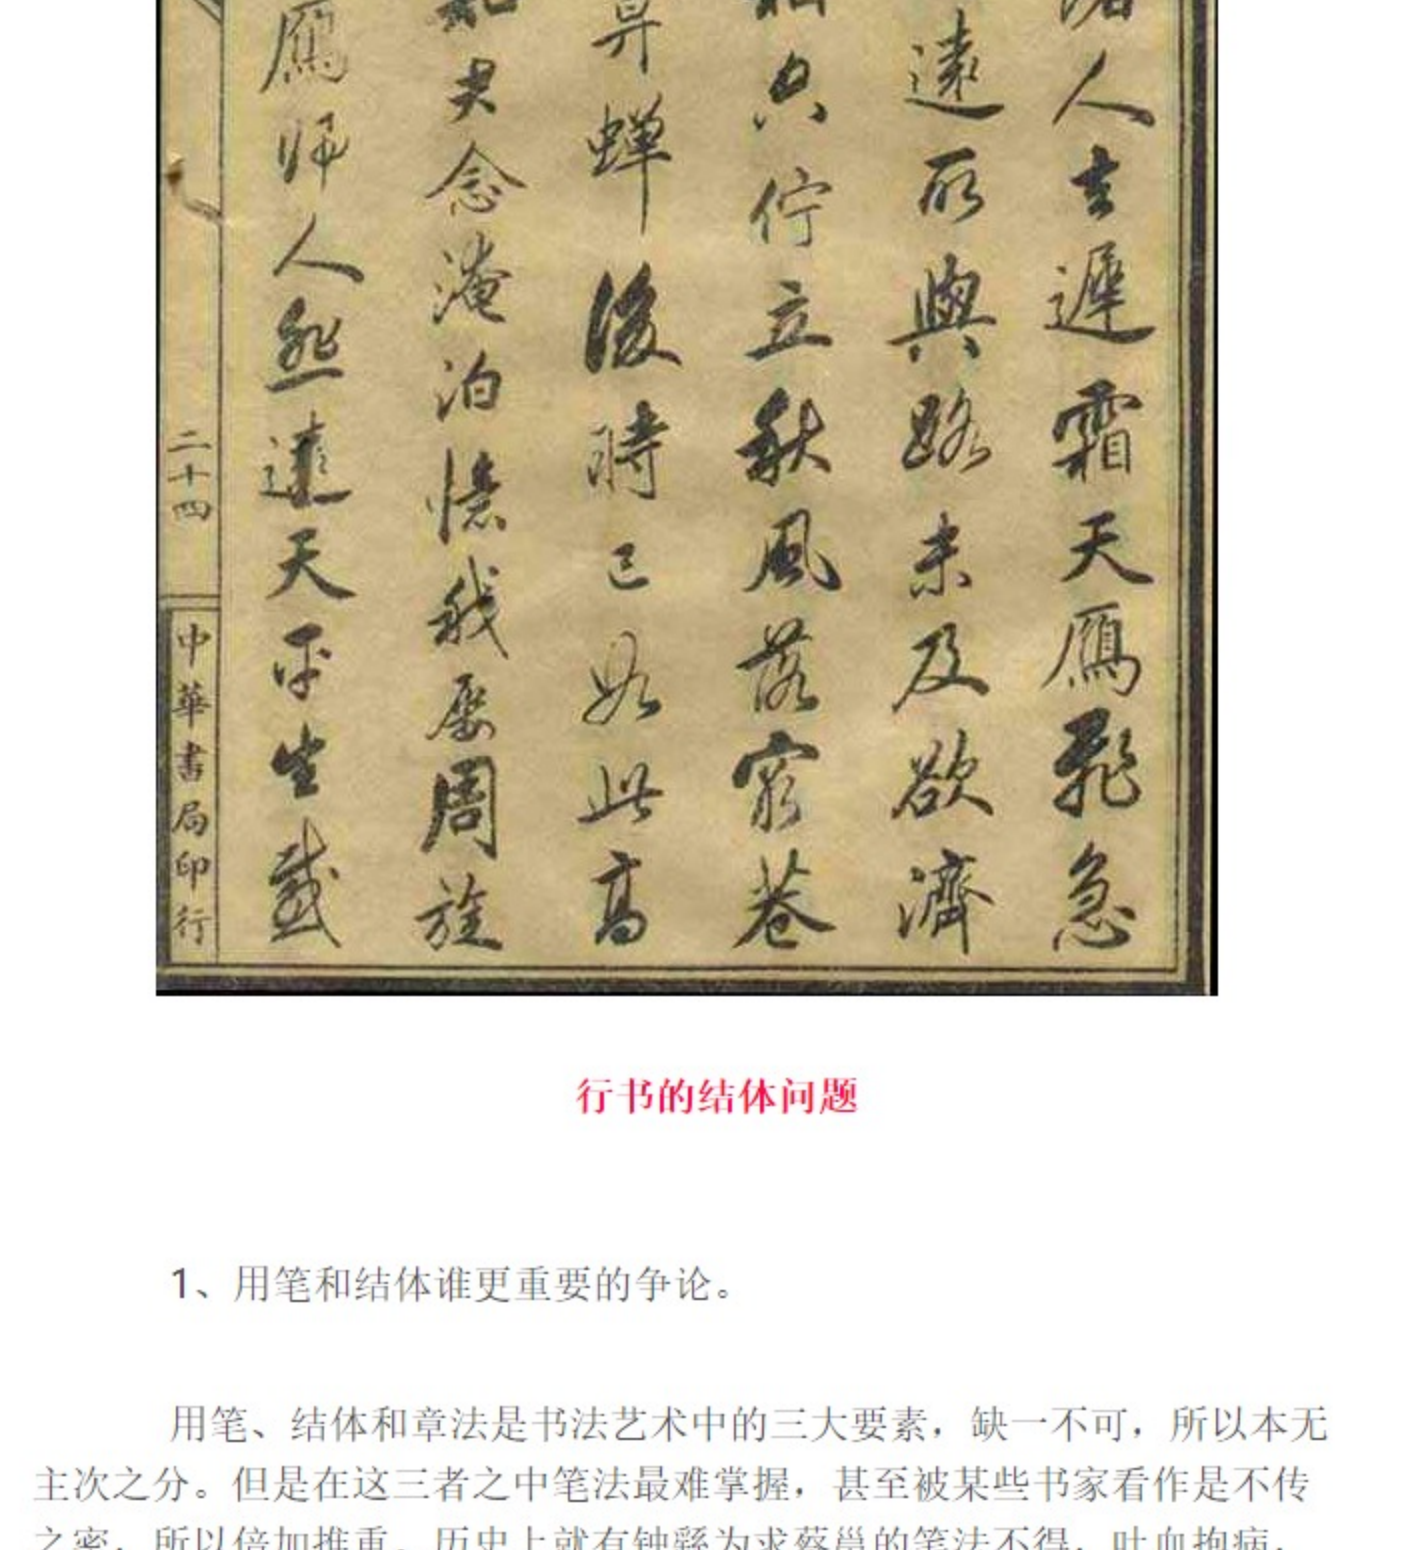 人去遲霜天鴈飛急
遠所與路未及欲濟
佇立秋風落窮巷
蟬後時已如此高
念淹泊懷我屢周旋
鴈歸人天平生感
二十四
中華書局印行
行书的结体问题
1、用笔和结体谁更重要的争论。
用笔、结体和章法是书法艺术中的三大要素，缺一不可，所以本无
主次之分。但是在这三者之中笔法最难掌握，甚至被某些书家看作是不传
之密，所以倍加推重。历史上就有钟繇为求蔡邕的笔法不得，吐血抱病，